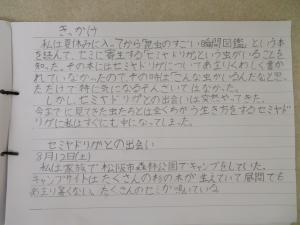 きっかけ
私は夏休みに入ってから「昆虫のすごい瞬間図鑑」という本
を読んで、セミに寄生する「セミヤドリガ」という虫がいることを
知った。その本にはセミヤドリガについてあまりくわしく書か
れていなかったので、その時は「こんな虫がいるんだな」と思っ
ただけで特に気になるそんざいではなかった。
しかし、セミヤドリガとの出会いは突然やってきた。
今までに見てきた虫たちとは全くちがう生き方をするセミヤド
リガに私はすぐにむ中になってしまった。
セミヤドリガとの出会い
8月12日(土)
私は家族で松阪市森林公園でキャンプをしていた。
キャンプサイトはたくさんの杉の木が生えていて昼間でも
あまり暑くない。たくさんのセミが鳴いている。